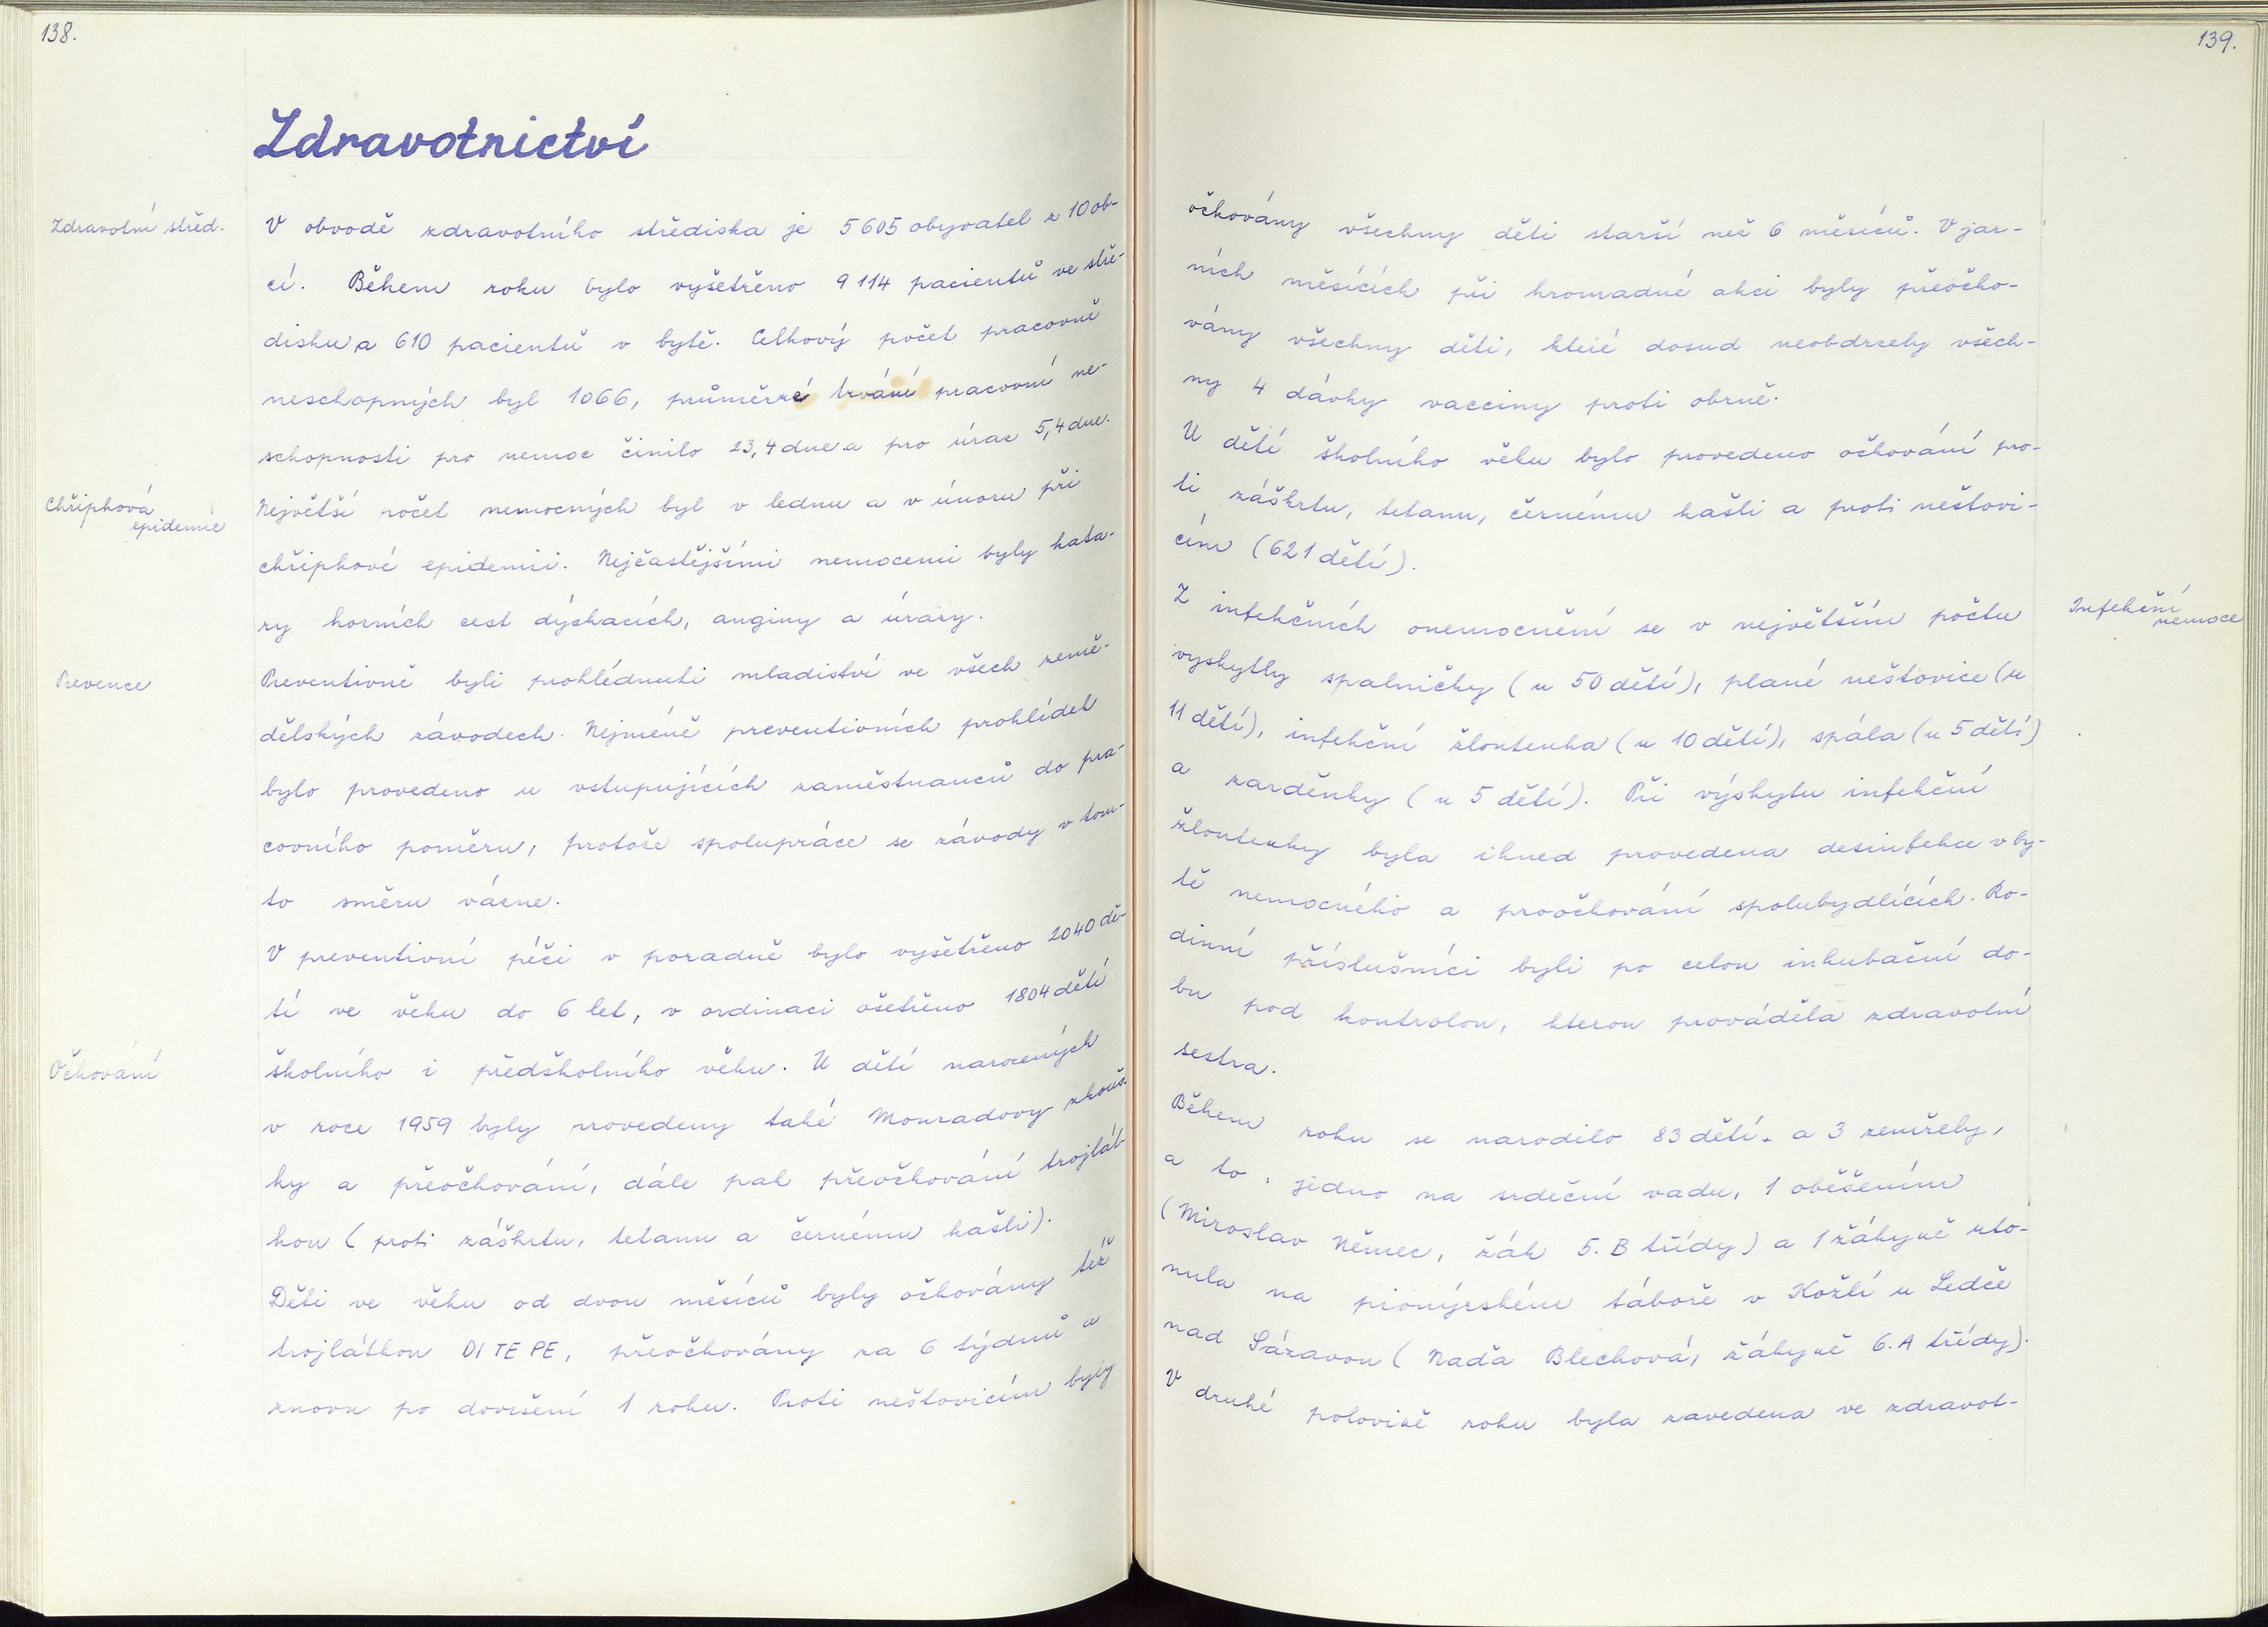 138.
Zdravotnictví
Zdravotní střed.
V obvodě zdravotního střediska je 5605 obyvatel z 10 ob-
cí. Během roku bylo vyšetřeno 9 114 pacientů ve stře-
disku a 610 pacientů v bytě. Celkový počet pracovně
neschopných byl 1066, průměrné trvání pracovní ne-
schopnosti pro nemoc činilo 23,4 dne a pro úraz 5,4 dne.
Chřipková
epidemie
Největší počet nemocných byl v lednu a v únoru při
chřipkové epidemii. Nejčastějšími nemocemi byly kata-
ry horních cest dýchacích, anginy a úrazy.
Prevence
Preventivně byli prohlédnuti mladiství ve všech země-
dělských závodech. Nejméně preventivních prohlídek
bylo provedeno u vstupujících zaměstnanců do pra-
covního poměru, protože spolupráce se závody v tom-
to směru vázne.
V preventivní péči v poradně bylo vyšetřeno 2040 dě-
tí ve věku do 6 let, v ordinaci ošetřeno 1804 dětí
Očkování
školního i předškolního věku. U dětí narozených
v roce 1959 byly provedeny také Monradovy zkouš-
ky a přeočkování, dále pak přeočkování trojlát-
kou (proti záškrtu, tetanu a černému kašli).
Děti ve věku od dvou měsíců byly očkovány též
trojlátkou DI TE PE, přeočkovány za 6 týdnů a
znovu po dovršení 1 roku. Proti neštovicím byly
139.
očkovány všechny děti starší než 6 měsíců. V jar-
ních měsících při hromadné akci byly přeočko-
vány všechny děti, které dosud neobdržely všech-
ny 4 dávky vacciny proti obrně.
U dětí školního věku bylo provedeno očkování pro-
ti záškrtu, tetanu, černému kašli a proti neštovi-
cím (621 dětí).
Infekční
nemoce
Z infekčních onemocnění se v největším počtu
vyskytly spalničky (u 50 dětí), plané neštovice (u
11 dětí), infekční žloutenka (u 10 dětí), spála (u 5 dětí)
a zarděnky (u 5 dětí). Při výskytu infekční
žloutenky byla ihned provedena desinfekce v by-
tě nemocného a proočkování spolubydlících. Ro-
dinní příslušníci byli po celou inkubační do-
bu pod kontrolou, kterou prováděla zdravotní
sestra.
Během roku se narodilo 83 dětí. a 3 zemřely,
a to: jedno na srdeční vadu, 1 oběšením
(Miroslav Němec, žák 5. B třídy) a 1 žákyně uto-
nula na pionýrském táboře v Kožlí u Ledče
nad Sázavou (Naďa Blechová, žákyně 6. A třídy).
V druhé polovině roku byla zavedena ve zdravot-